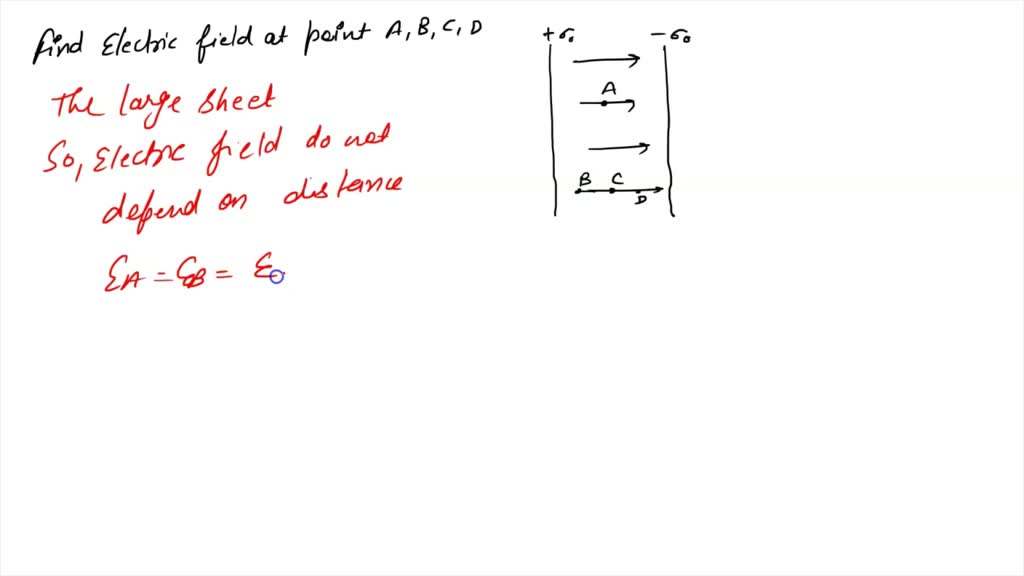 find Electric field at point A, B, C, D
The large sheet
So, Electric field do not
depend on distance
EA = EB = E
+σ₀ −σ₀
A
B C
D